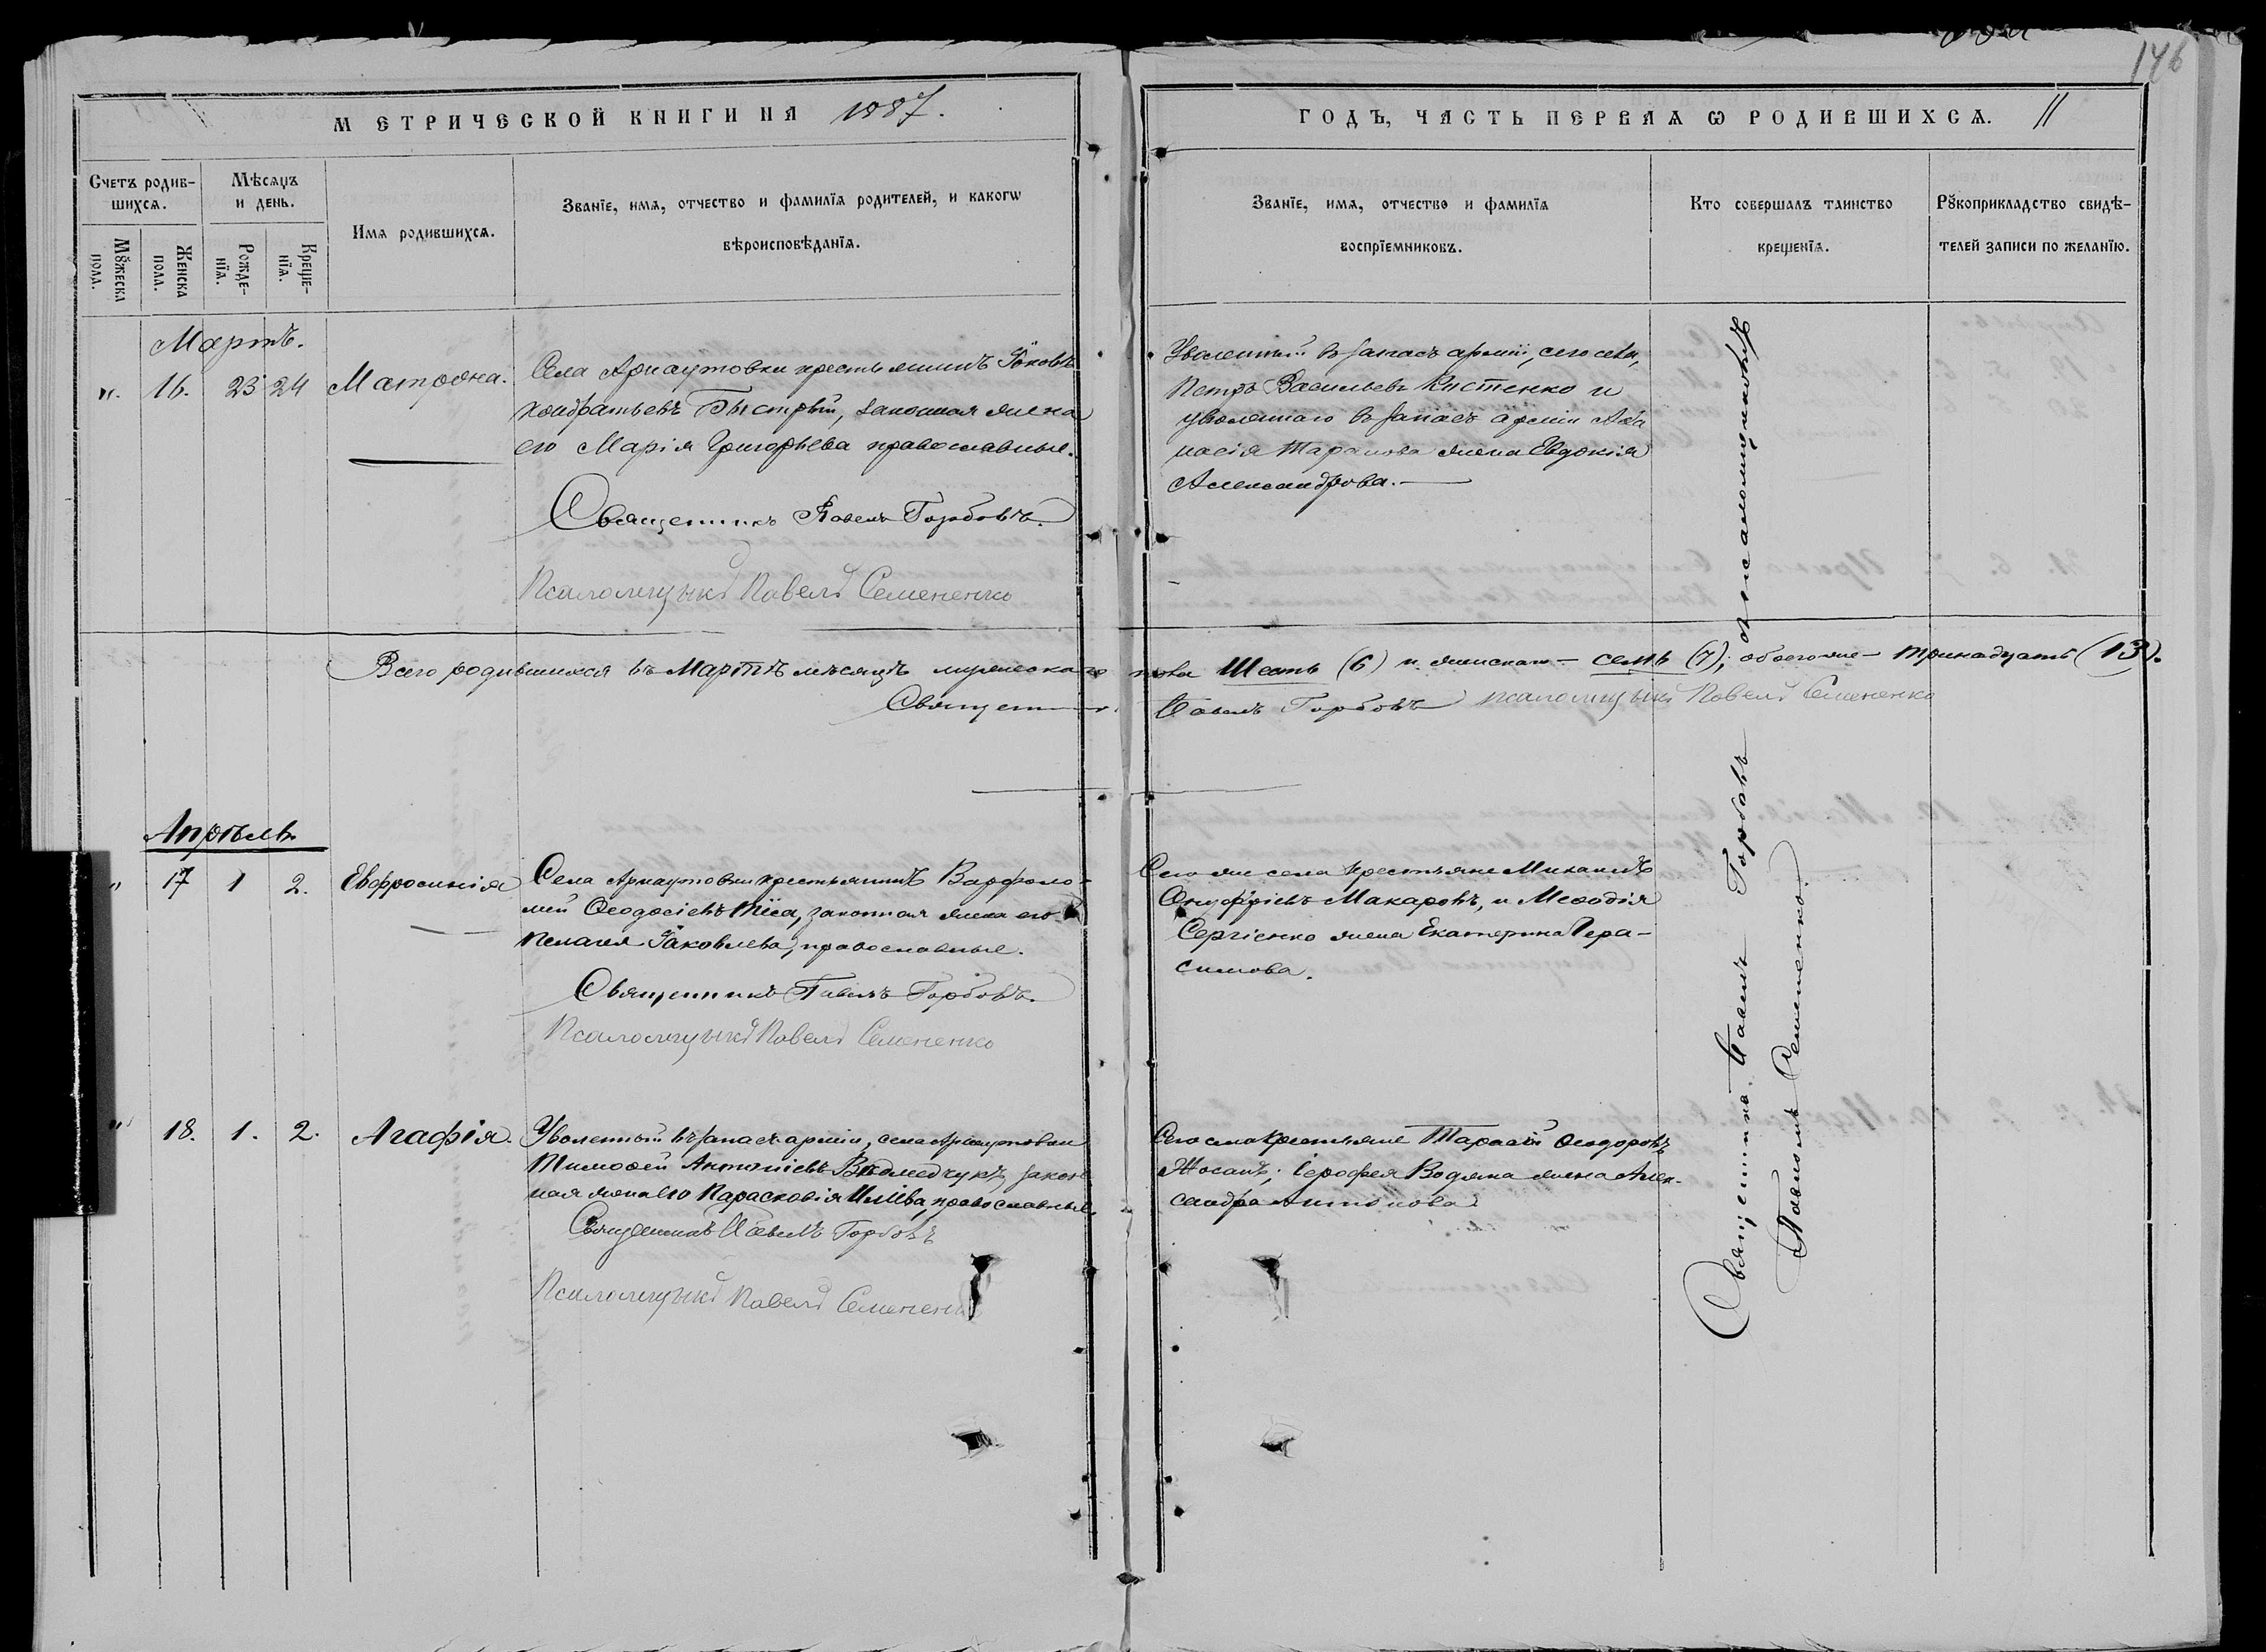 146
МЕТРИЧЕСКОЙ КНИГИ НА 1887.
ГОДЪ, ЧАСТЬ ПЕРВАѦ Ѡ РОДИВШИХСѦ. 11
Счетъ родив-
шихсѧ.
Мѣсѧцъ
и день.
Мꙋжеска
пола.
Женска
пола.
Рожде-
нїѧ.
Креще-
нїѧ.
Имѧ родившихсѧ.
Званїе, имѧ, отчество и фамилїѧ родителей, и какогѡ
вѣроисповѣданїѧ.
Званїе, имѧ, отчество и фамилїѧ
воспрїемниковъ.
Кто совершалъ таинство
крещенїѧ.
Рꙋкоприкладство свидѣ-
телей записи по желанїю.
Мартъ.
". 16. 23 24 Матрона.
Села Арнаутовки крестьянинъ Іаковъ
Кондратьевъ Быстрый, законная жена
его Марія Григорьева православные.
Священникъ Павелъ Горбовъ.
Псаломщикъ Павелъ Семененко
Уволенный въ запасъ арміи, сего села,
Петръ Васильевъ Кистенко и
уволеннаго въ запасъ арміи Афа
насія Таранова жена Евдокія
Александрова.
Всего родившихся въ Мартѣ мѣсяцѣ мужескаго пола Шесть (6) и женскаго - семь (7), обоего же - тринадцать (13).
Священникъ Павелъ Горбовъ Псаломщикъ Павелъ Семененко
Апрѣль
" 17 1 2. Евфросинія
Села Арнаутовки крестьянинъ Варфоло-
мей Ѳеодосіевъ Тіса, законная жена его
Пелагея Іаковлева, православные.
Священникъ Павелъ Горбовъ.
Псаломщикъ Павелъ Семененко
Сего же села крестьяне Михаилъ
Онуфріевъ Макаровъ, и Меѳодія
Сергіенко жена Екатерина Гера-
симова.
" 18. 1. 2. Агафія.
Уволенный въ запасъ арміи, села Арнаутовки
Тимоѳей Антоніевъ Ведмедчукъ, закон
ная жена его Парасковія Иліева, православные.
Священникъ Павелъ Горбовъ
Псаломщикъ Павелъ Семененко
Сего села крестьяне Тарасій Ѳеодоровъ
Жосанъ; Іерофея Водяна жена Алек-
сандра Антонова
Священникъ Павелъ Горбовъ съ псаломщикомъ
Павломъ Семененко.